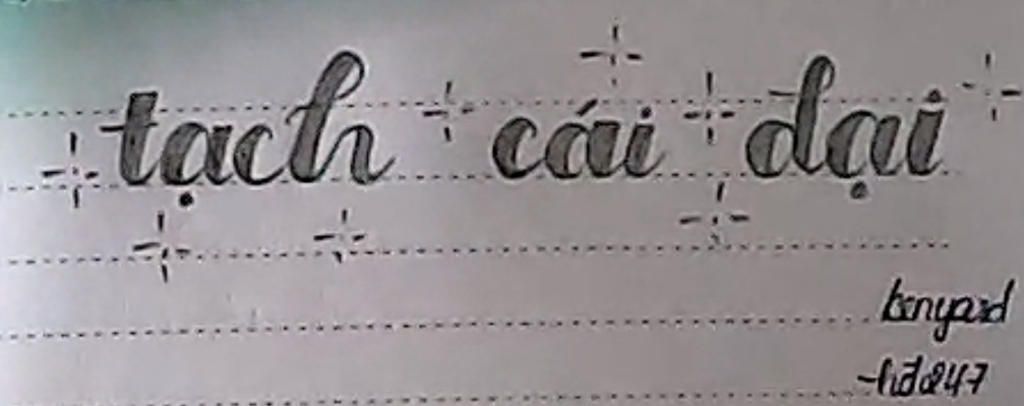 tạch cái đại
kenyard
-hđ247